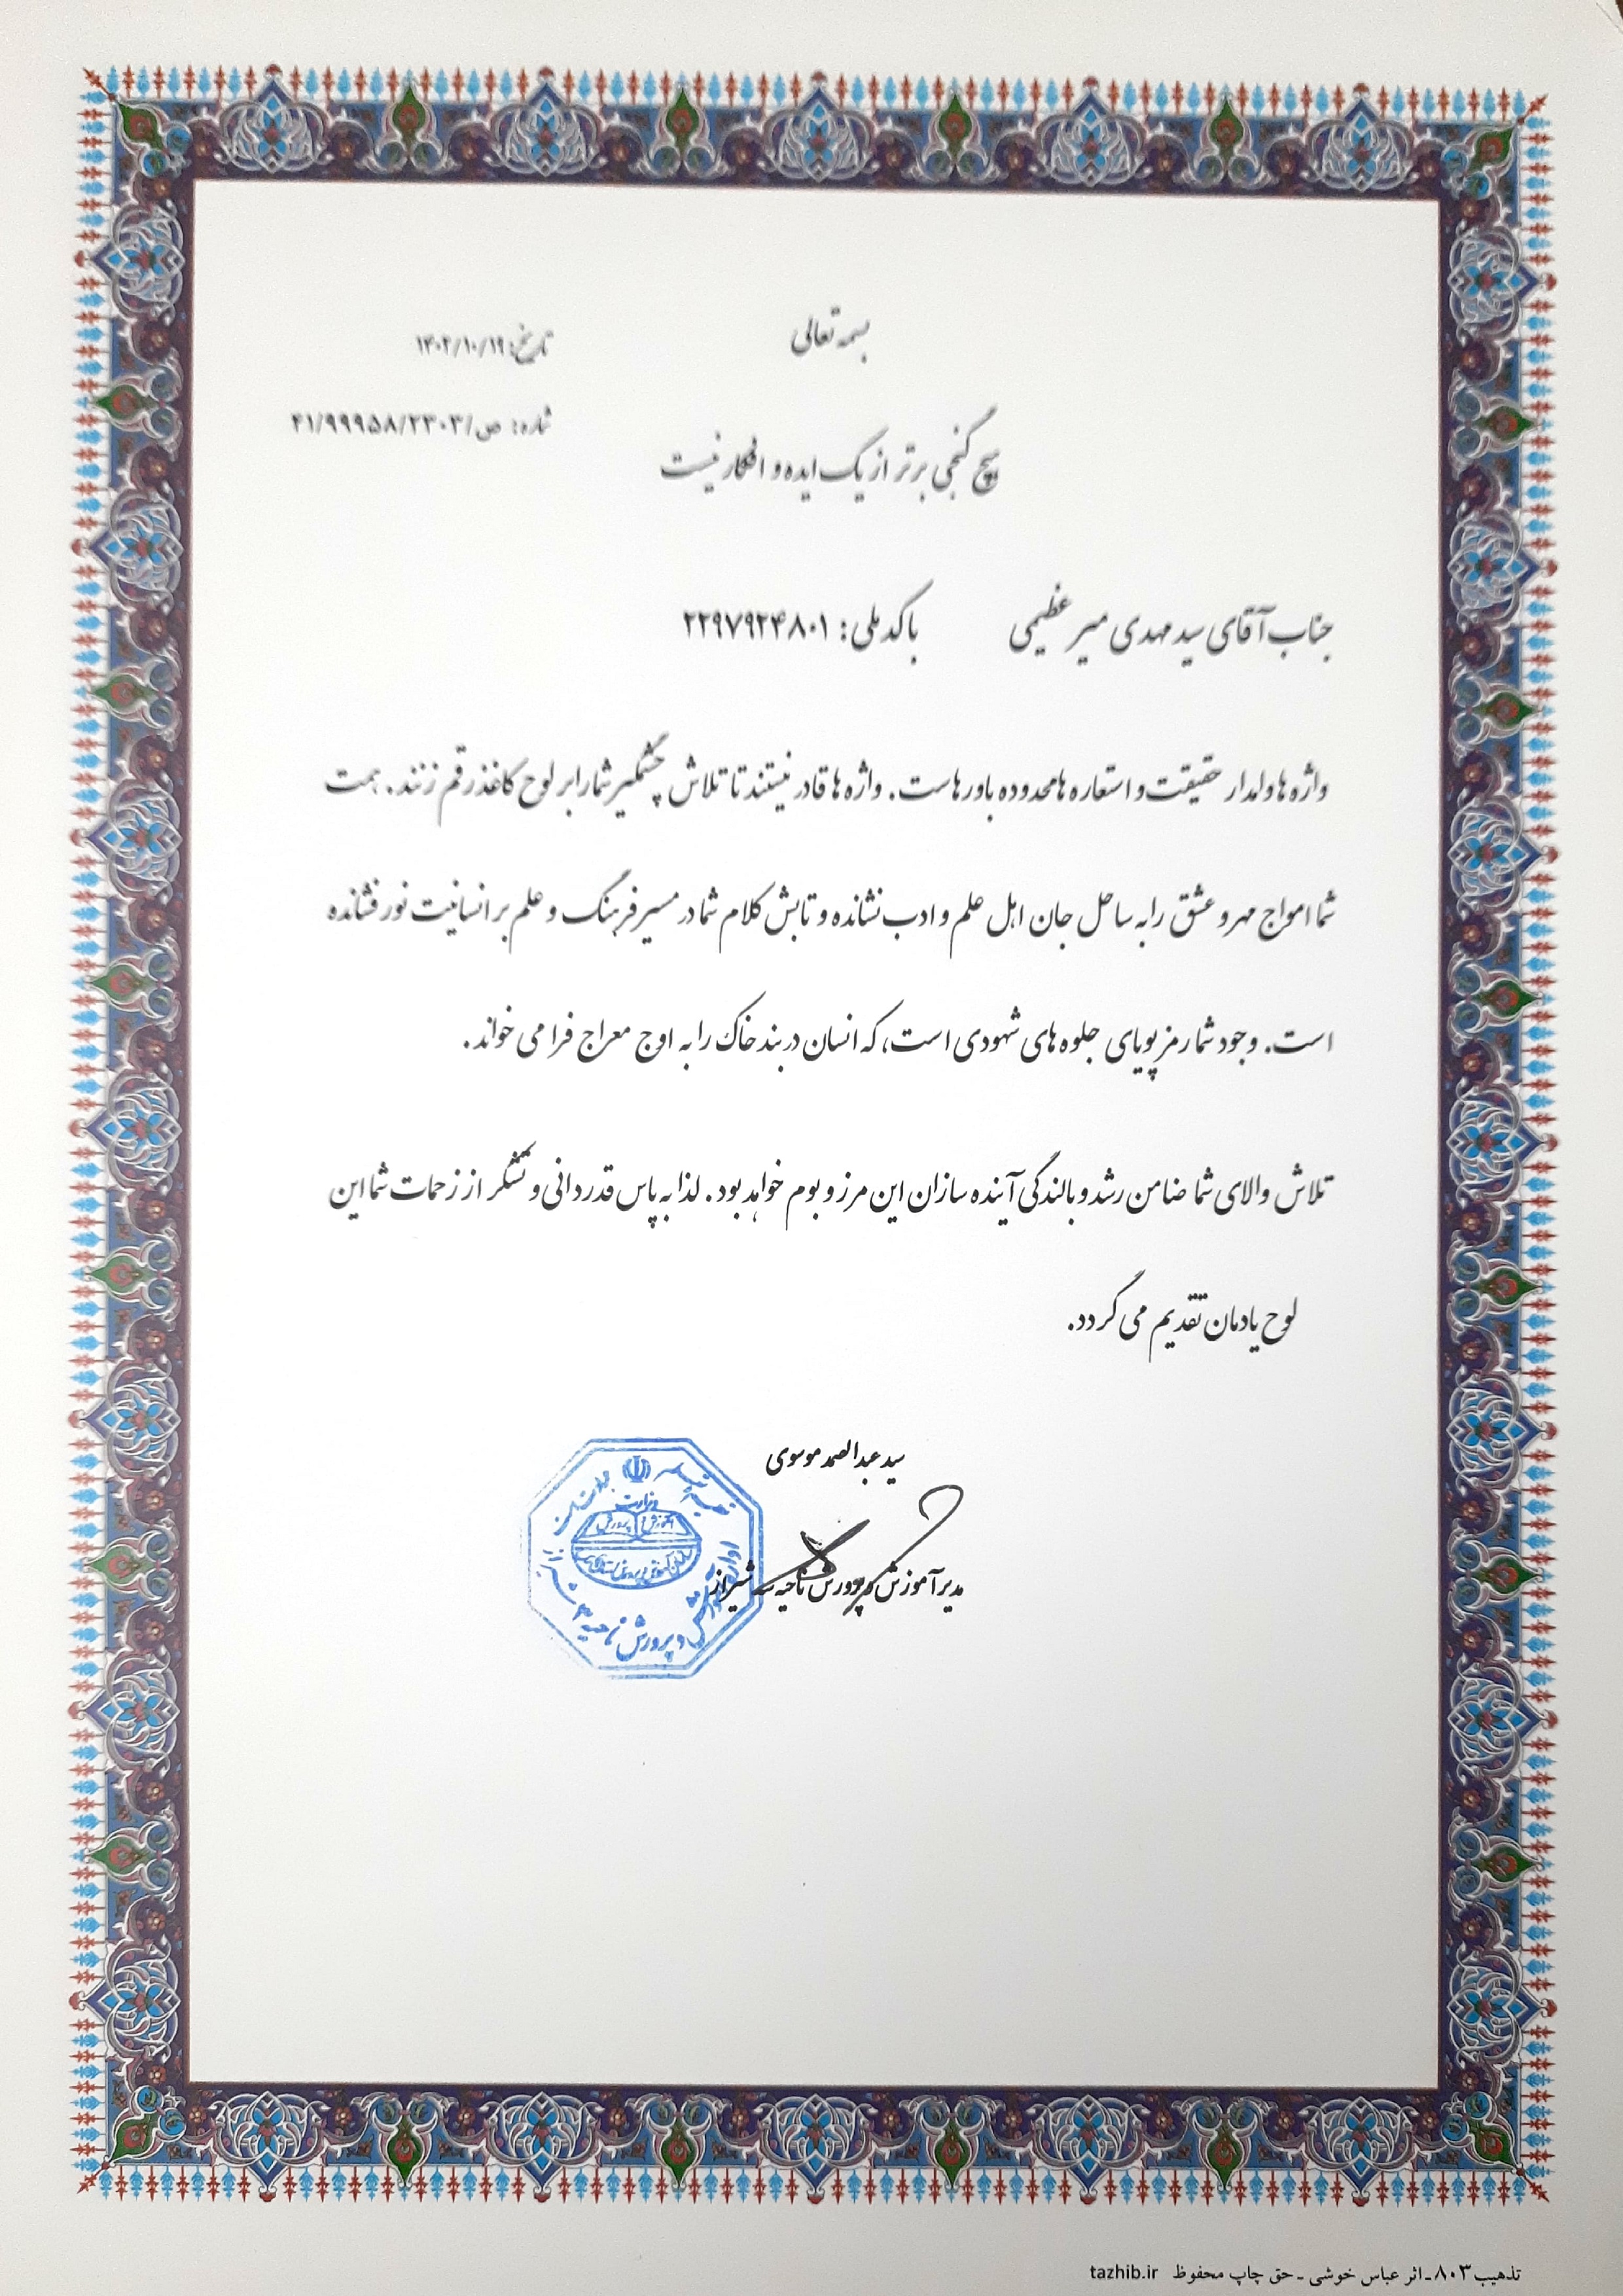 بسمه تعالی
تاریخ: ۱۴۰۲/۱۰/۱۹
شماره: ص/۴۱/۹۹۹۵۸/۲۳۰۳
هیچ گنجی برتر از یک ایده و افکار نیست
جناب آقای سید مهدی میر عظیمی با کد ملی: ۲۲۹۷۹۲۴۸۰۱
واژه ها ولمدار حقیقت و استعاره ها محدوده باورهاست. واژه ها قادر نیستند تا تلاش چشمگیر شما را بر لوح کاغذ رقم زنند. همت
شما امواج مهر و عشق را به ساحل جان اهل علم و ادب نشانده و تابش کلام شما در مسیر فرهنگ و علم بر انسانیت نور فشانده
است. وجود شما رمز پویای جلوه های شهودی است، که انسان در بند خاک را به اوج معراج فرا می خواند.
تلاش والای شما ضامن رشد و بالندگی آینده سازان این مرز و بوم خواهد بود. لذا به پاس قدردانی و تشکر از زحمات شما این
لوح یادمان تقدیم می گردد.
سید عبدالصمد موسوی
مدیر آموزش و پرورش ناحیه سه شیراز
وزارت
آموزش و پرورش
اداره آموزش و پرورش ناحیه ۳ شیراز
تذهیب ۸۰۳ - اثر عباس خوشی - حق چاپ محفوظ tazhib.ir